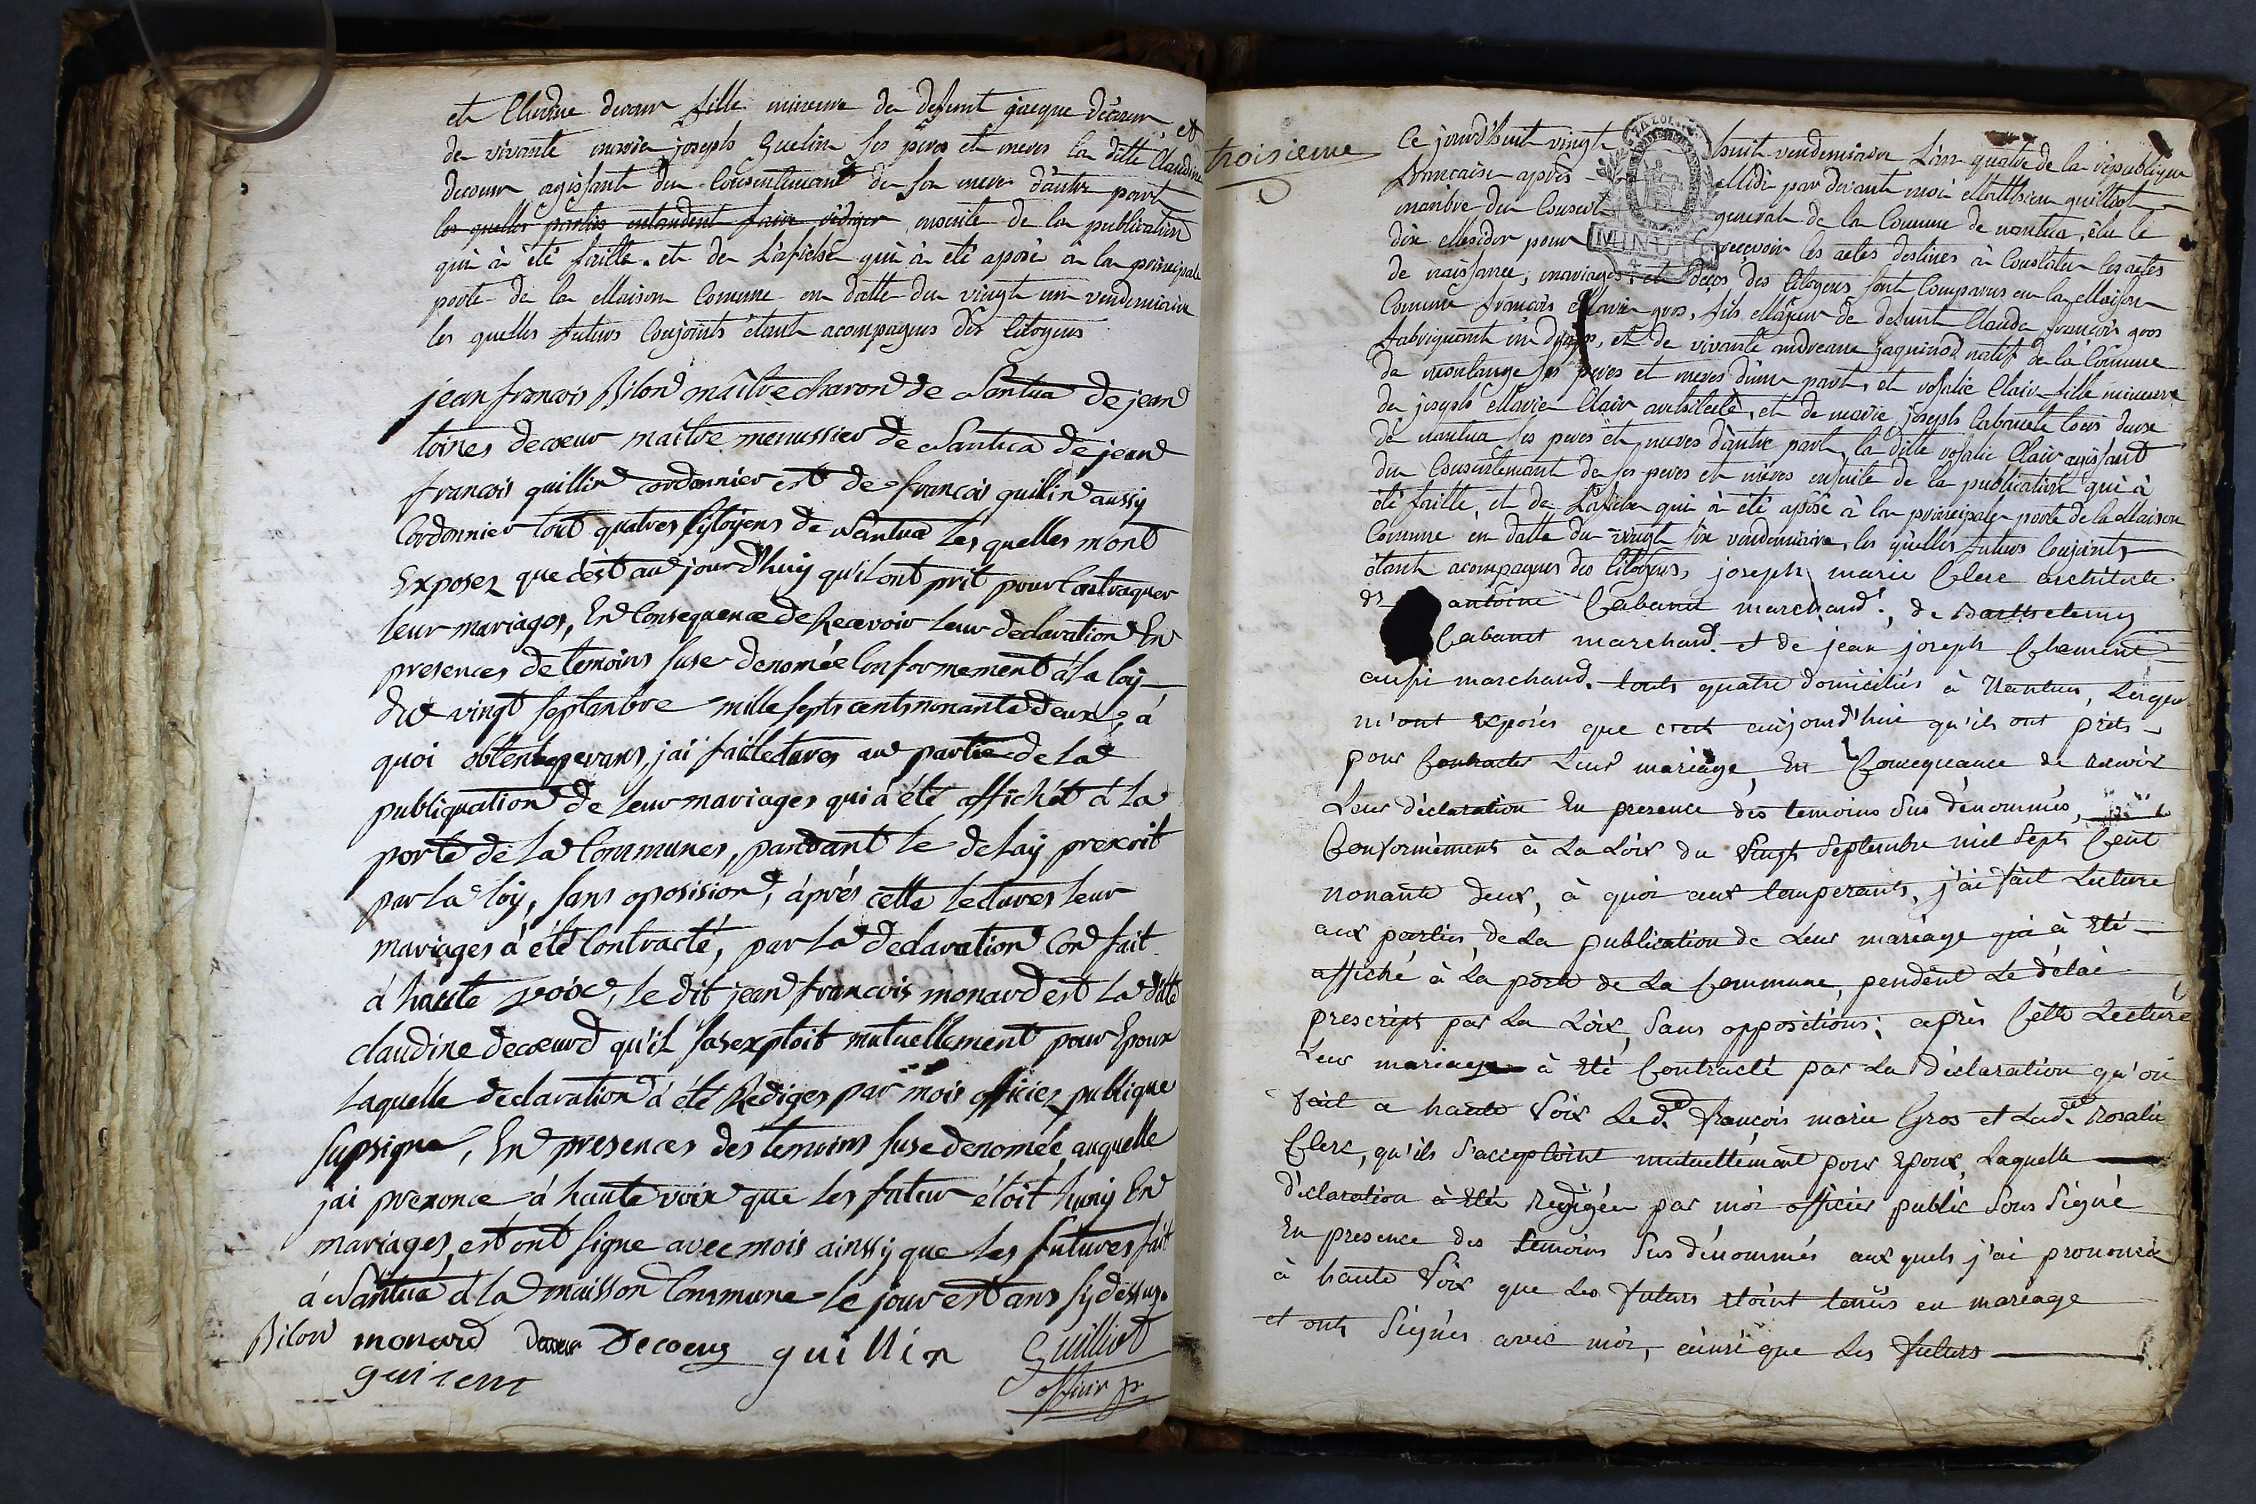 et Cludine decoeur fille mineure de defunt jacque décoeur et
de vivante marie joseph Guelin ses peres et meres la ditte Claudine
decoeur agissante du Consentement de sa mere d'autre part
les quelles parties entendent faire rédiger ensuite de la publication
qui à été faitte. et de L'afiche qui à été aposé à la principale
porte de la Maison Comune en datte du vingt un vendemiaire
les quelles futurs Conjoints étant acompagnes des Citoyens
jean francois Bilond maître charon de Nantua de jean
toines decoeur maître menussier de Nantua de jean
francois quillin cordonnier est de francois quillin aussy
Cordonnier tout quatres Cytoÿens de Nantua Les quelles m'ont
Exposez que c'est au jour D'huy qu'il ont prit pour Contraquer
leur mariages, En Consequence de Recevoir leur declaration En
presences de temoins suse denomée Conformement á la loÿ
du vingt septanbre mille septs cents nonante deux, á
quoi obtenhperans, jai fait lectures au partie de la
publiquation de leur mariages qui á été affichét á la
porte de la Communes, pandant le delaÿ prexcrit
par la loÿ, sans oposision, áprés cette lectures leur
mariages á été Contracté, par la declaration Con fait
á haute voix, le dit jean francois monard est la ditte
claudine decoeurd qu'il sasexptoit mutuellement pour Epoux
Laquelle declaration á été Rediges par mois officiez publique
supsigne, En presences des temoins suse denomée, auquelle
jai prexonce á haute voix que les futeur étoit huniy En
mariages, est ont signe avec mois ainssy que les futures fait
á Nantua á la maisson Commune le jour est ans sy dessus.
Bilond monard Decoeur Decoeur quillin Guilliot
guilem officier p.
troisieme
Ce jourd'huit vingt huit vendemiaire L'an quatre de la république
francaise après Midi par devant moi Matthieu guilliot
manbre du Conseil general de la Comune de nantua, élu le
dix Messidor pour recevoir les actes destinés à Constater les actes
MINUTE
de naissance, mariages et déces des Citoyens sont Comparus en la Maison
Comune francois Marie gros, fils Majeur de defunt Claude francois gros
fabriquant in , et de vivante andreane jaquinod natif de la Comune
de montange ses peres et meres d'une part, et rosalie Clair fille mineure
de joseph Marie Clair architecte, et de marie joseph Cabanete tous deux
de nantua ses peres et meres d'autre part, la ditte rosalie Clair agissant
du Consentement de ses peres et mères ensuite de la publication qui à
été faitte, et de L'afiche qui à été apôsé à la principale porte de la Maison
Comune en datte du vingt six vendemiaire, les quelles futurs Conjoints
étant acompagnes des Citoyens, joseph marie Clerc architecte
d' antoine Cabanet marchand; de Barthelemy
Cabanet marchand. et de jean joseph Chement
aussi marchand. touts quatre domiciliés à Nantua, Lesquels
m'ont exposés que c'est aujourd'hui qu'ils ont prits
pour Contracter Leur mariage, En Consequance de recevoir
Leur déclaration En presence des temoins sus dénommés,
Conformément à La Loix du Vingt Septembre mil Sept Cent
nonante deux, à quoi aux temperants, j'ai fait Lecture
aux parties, de La publication de Leur mariage qui à été
affiché à La porte de La Commune, pendent Le délai
prescript par La Loix, Sans oppositions; après Cette Lecture
Leur mariage à été Contracté par La déclaration qu'on
fait a haute Voix Led. François marie Gros et Lad. Rosalie
Clerc, qu'ils s'acceptoint mutuellement pour Epoux, Laquelle
déclaration à été redigée par moi officier public Sous Signé
En presence des temoins Sus dénommés aux quels j'ai prononcé
à haute Voix que Les futurs étoint tenüs en mariage
et onts Signés avec moi, ainsi que Les futurs